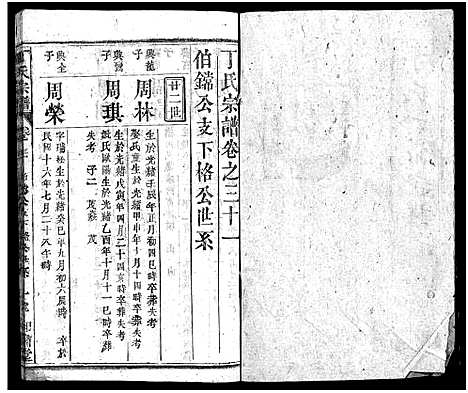 丁氏宗譜卷之三十一
伯鐺公支下格公世系
廿二世
興龍
子
周林
生於光緒壬辰年正月初四巳時卒葬失考
娶氏童生於光緒甲申年十月十四
興雲
子
周琪
生於光緒戊寅年四月二十四亥時卒葬失考
氏歐陽生於光緒乙酉年十月十一巳時卒葬
失考 子二 茂
興全
子
周榮
字瑞松生於光緒癸巳年九月初六辰時 卒於
民國十六年七月二十八午時